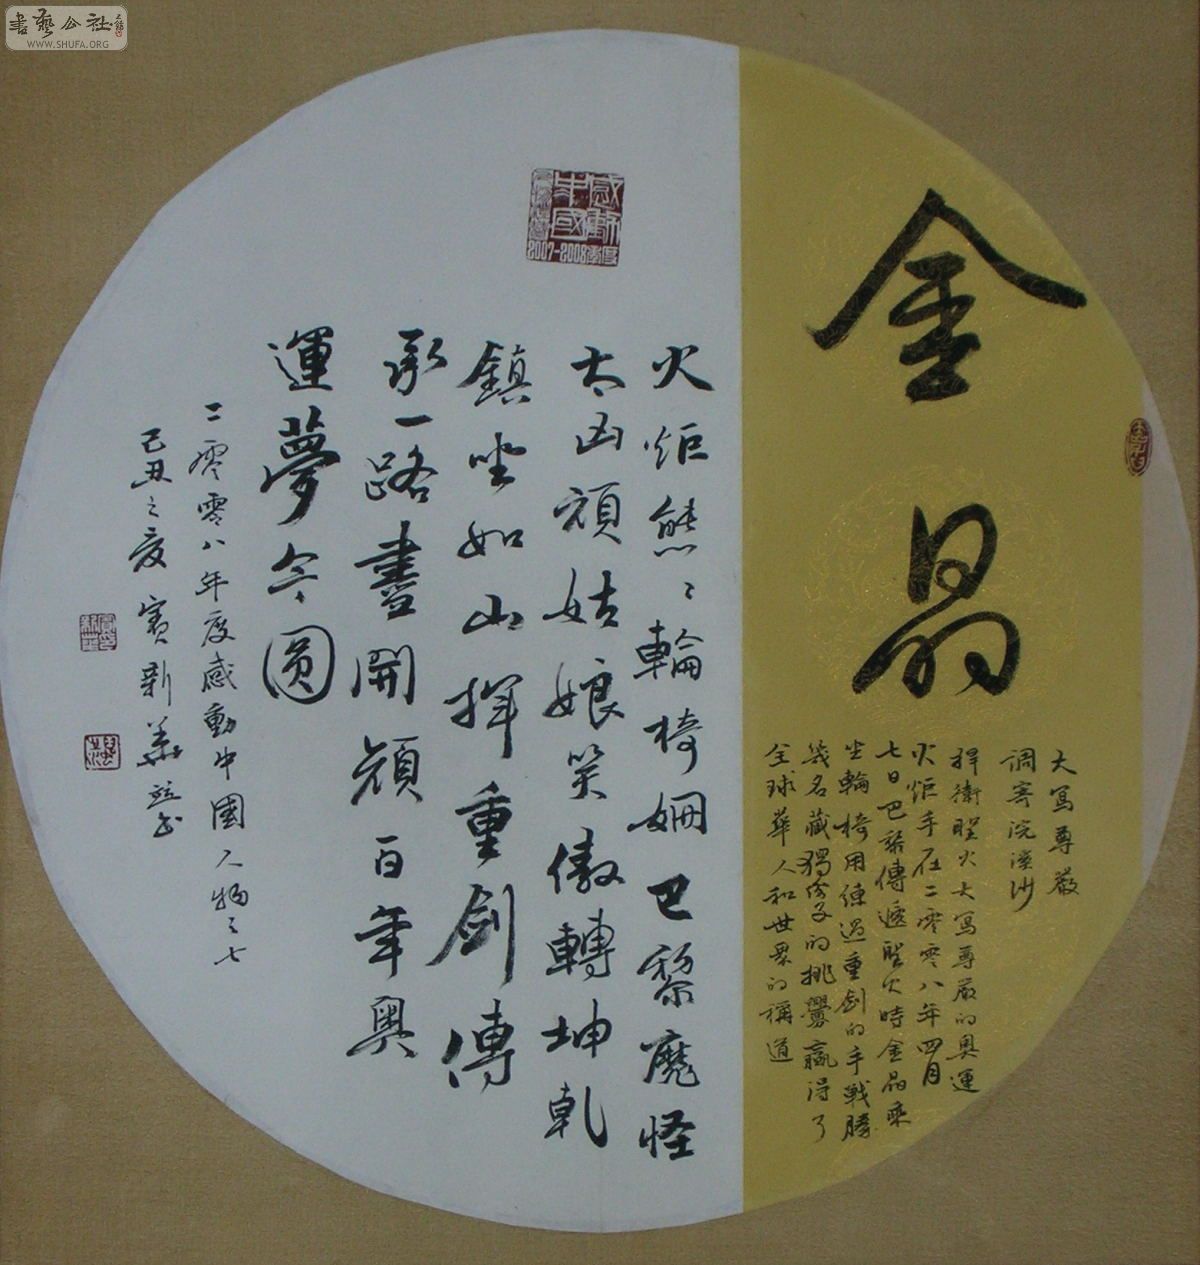 書藝公社
WWW.SHUFA.ORG
金晶
大寫尊嚴
調寄浣溪沙
捍衛聖火大寫尊嚴的奧運
火炬手在二零零八年四月
七日巴黎傳遞聖火時金晶乘
坐輪椅用練過重劍的手戰勝
幾名藏獨份子的挑釁贏得了
全球華人和世界的稱道
火炬熊〻輪椅姍巴黎魔怪
太凶頑姑娘笑傲轉坤乾
鎮坐如山揮重劍傳
承一路盡開顏百年奧
運夢今圓
二零零八年度感動中國人物之七
己丑之夏竇新華並書
感動中國
2007-2008年度